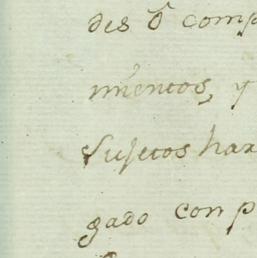 des ô comp
mientos, y
Sujetos hax
gado con p